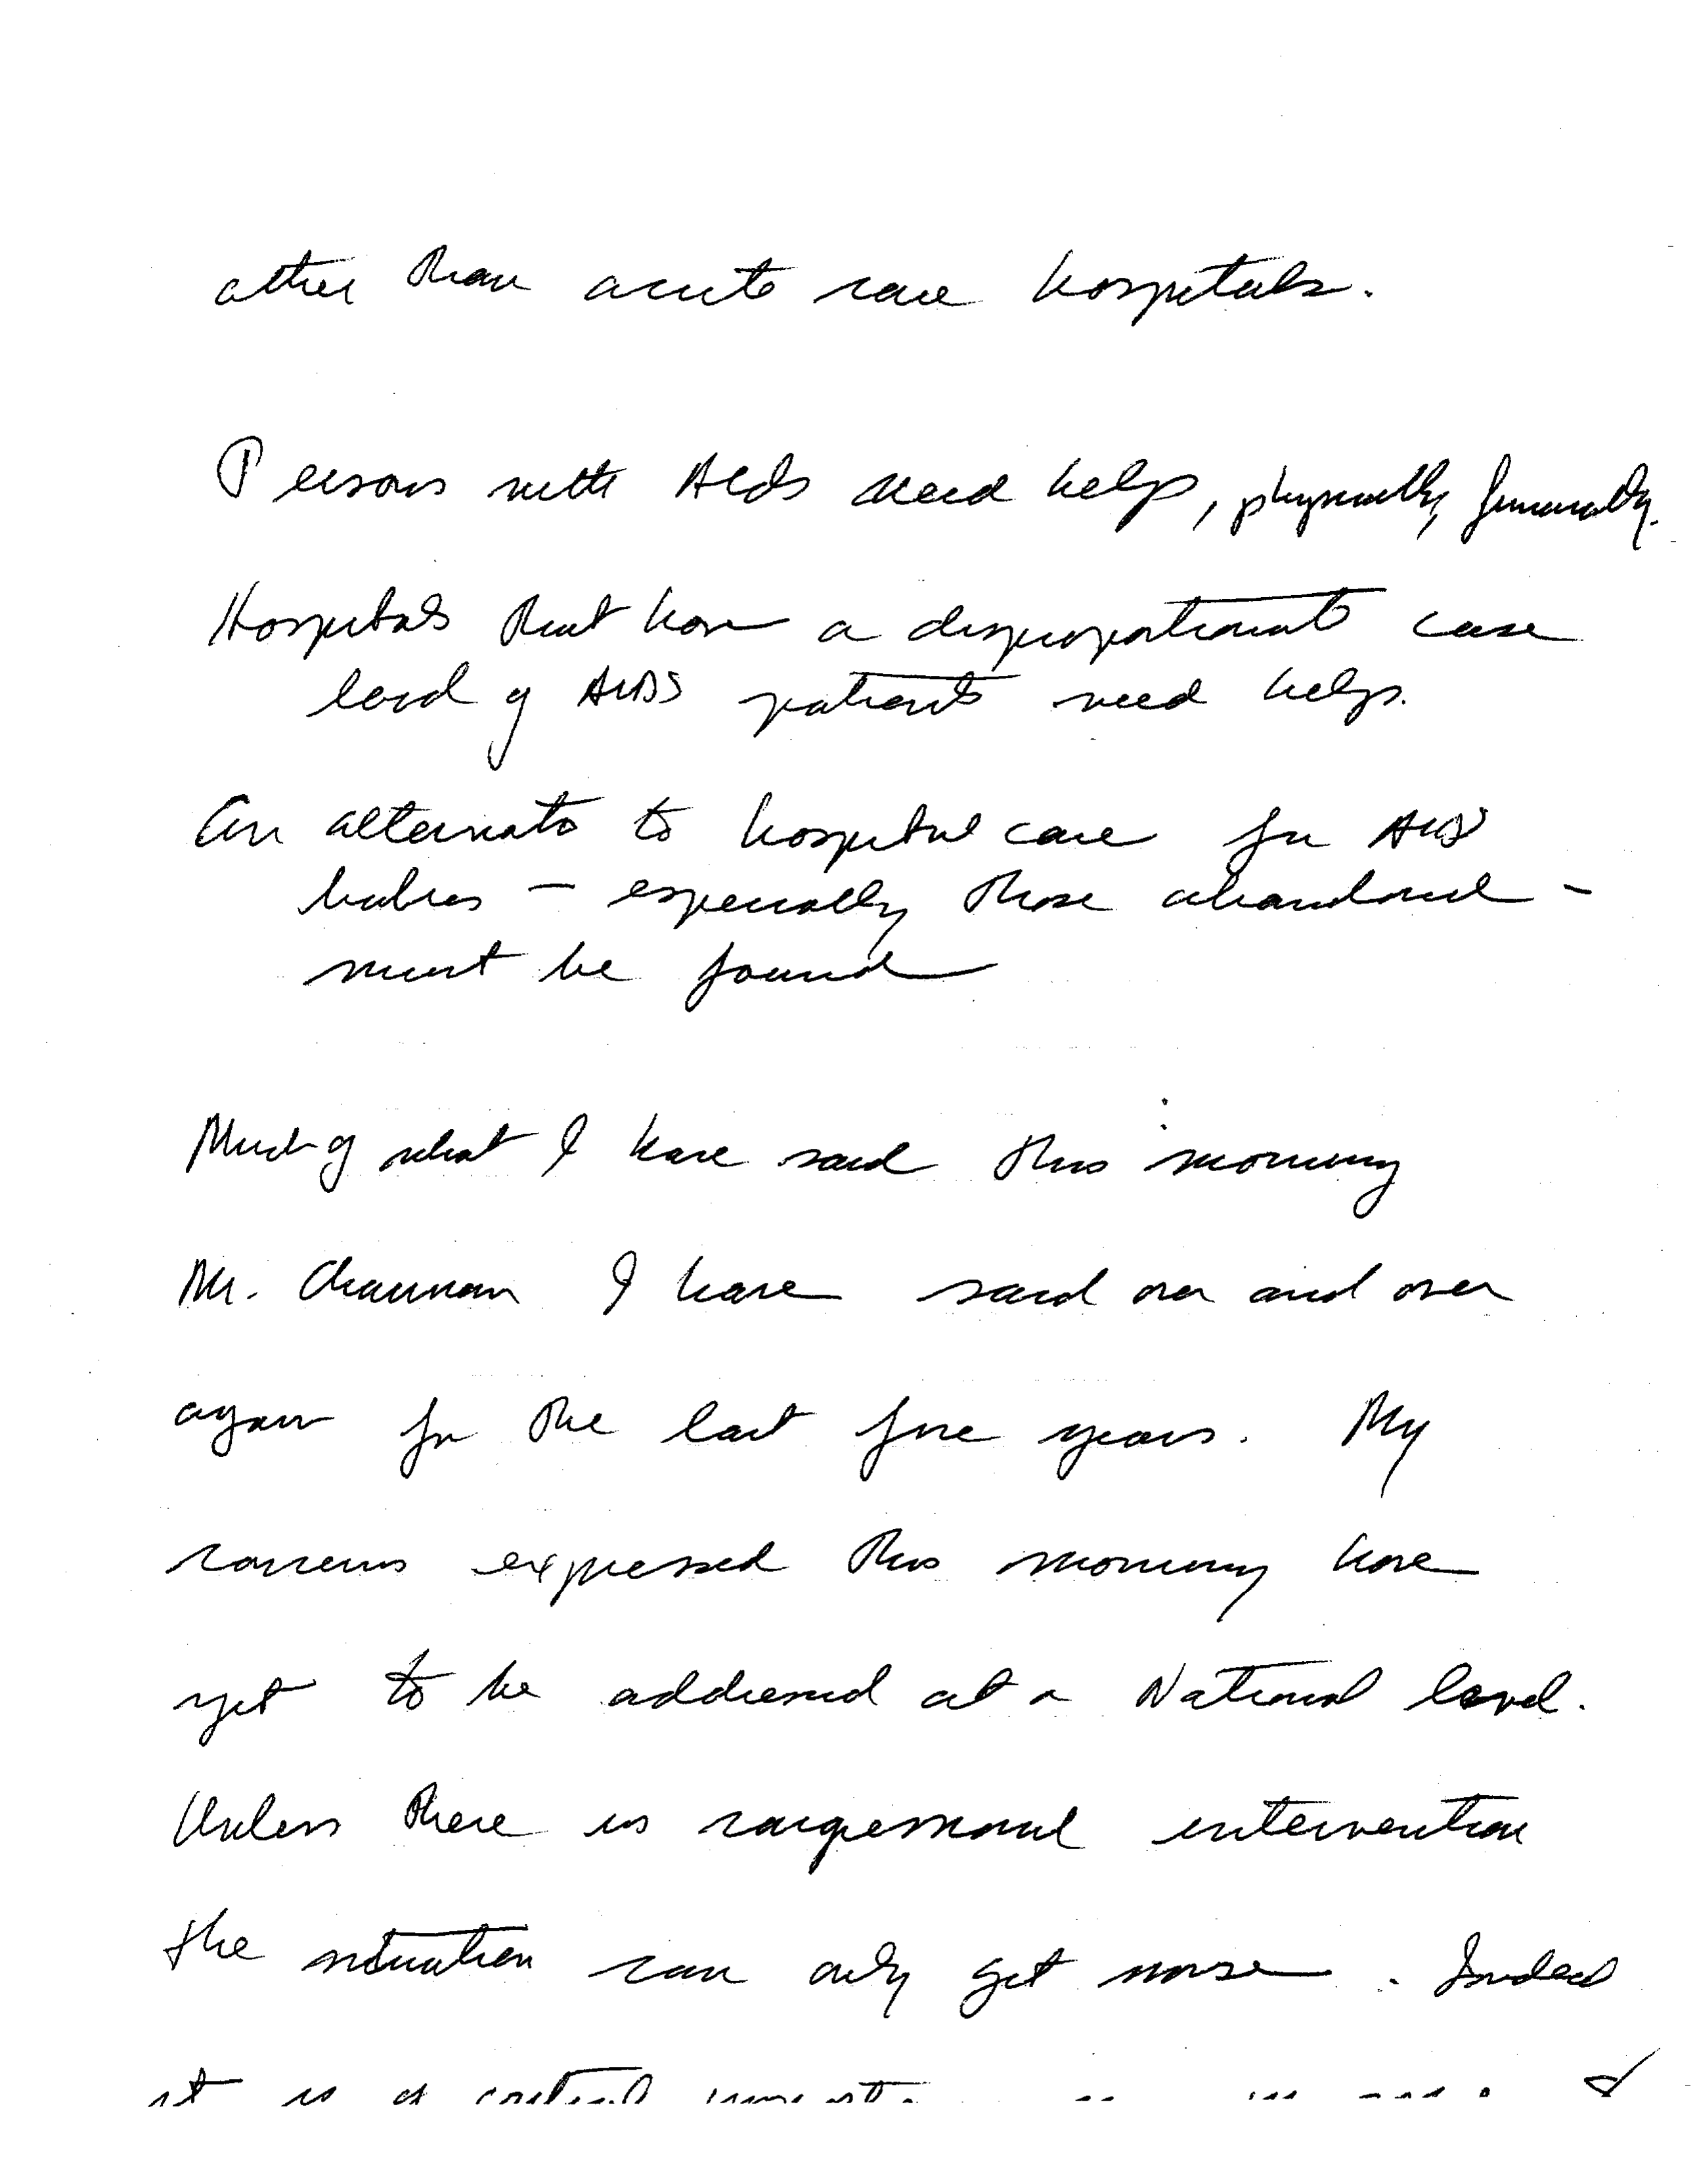 other than acute care hospitals.
Persons with AIDS need help, physically, financially.
Hospitals that have a disproportionate case
load of AIDS patients need help.
An alternate to hospital care for AIDS
babies - especially those abandoned -
must be found
Much of what I have said this morning
Mr. Chairman I have said over and over
again for the last five years. My
concerns expressed this morning have
yet to be addressed at a National level.
Unless there is congressional intervention
the situation can only get worse. Indeed
it is of critical